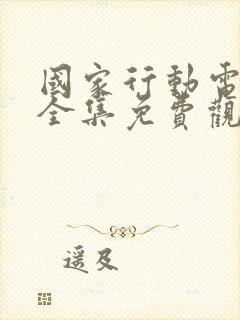 國家行動電
全集免費觀
遥及